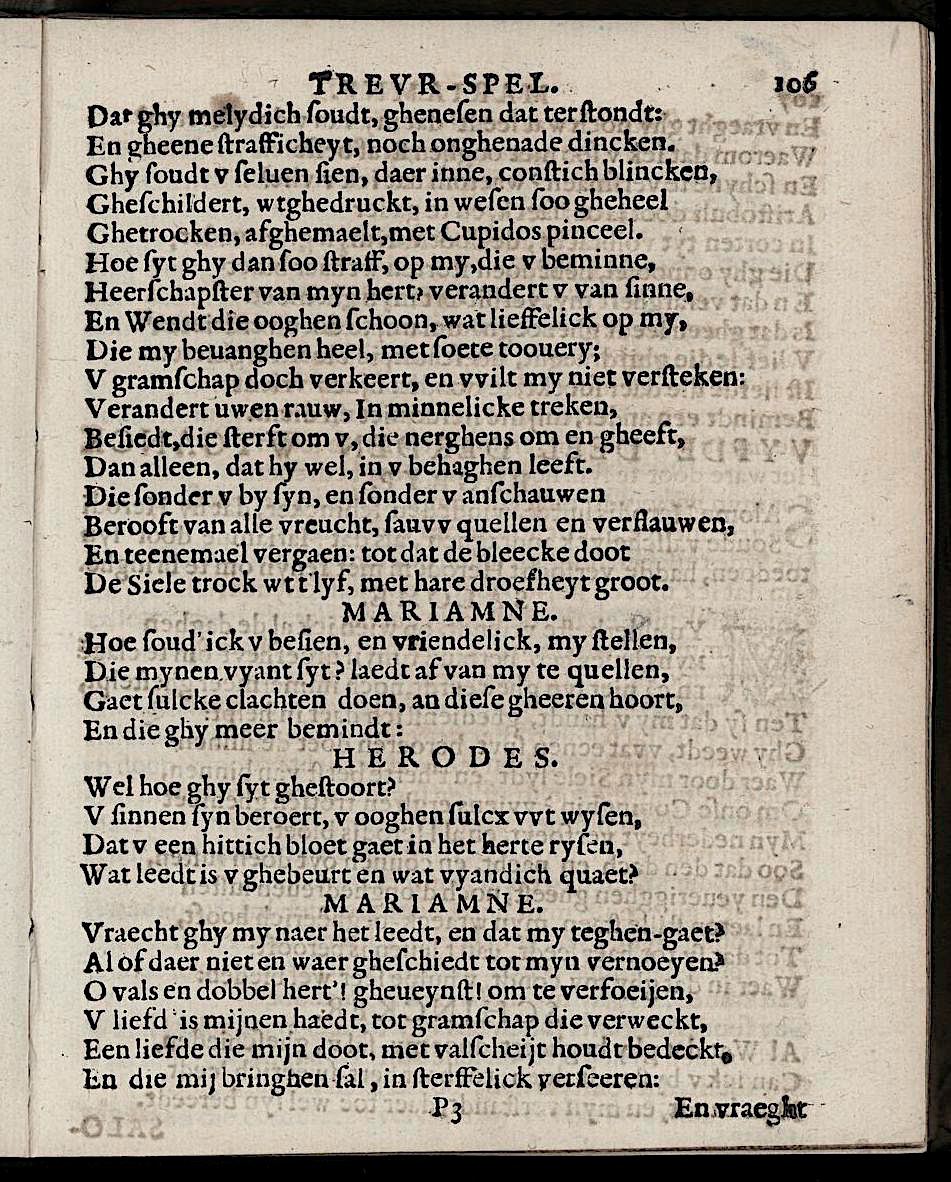 TREVR-SPEL. 106
Dat ghy melydich ſoudt, gheneſen dat terſtondt:
En gheene ſtrafficheyt, noch onghenade dincken.
Ghy ſoudt v ſeluen ſien, daer inne, conſtich blincken,
Gheſchildert, wtghedruckt, in weſen ſoo gheheel
Ghetrocken, afghemaelt, met Cupidos pinceel.
Hoe ſyt ghy dan ſoo ſtraff, op my, die v beminne,
Heerſchapſter van myn hert, verandert v van ſinne,
En Wendt die ooghen ſchoon, wat lieffelick op my,
Die my beuanghen heel, met ſoete toouery;
V gramſchap doch verkeert, en vvilt my niet verſteken:
Verandert uwen rauw, In minnelicke treken,
Beſiedt, die ſterft om v, die nerghens om en gheeft,
Dan alleen, dat hy wel, in v behaghen leeft.
Die ſonder v by ſyn, en ſonder v anſchauwen
Berooft van alle vreucht, ſauvv quellen en verflauwen,
En teenemael vergaen: tot dat de bleecke doot
De Siele trock wt t'lyf, met hare droefheyt groot.
MARIAMNE.
Hoe ſoud'ick v beſien, en vriendelick, my ſtellen,
Die mynen vyant ſyt? laedt af van my te quellen,
Gaet ſulcke clachten doen, an dieſe gheeren hoort,
En die ghy meer bemindt:
HERODES.
Wel hoe ghy ſyt gheſtoort?
V ſinnen ſyn beroert, v ooghen ſulcx vvt wyſen,
Dat v een hittich bloet gaet in het herte ryſen,
Wat leedt is v ghebeurt en wat vyandich quaet?
MARIAMNE.
Vraecht ghy my naer het leedt, en dat my teghen-gaet?
Al of daer niet en waer gheſchiedt tot myn vernoeyen?
O vals en dobbel hert'! gheueynſt! om te verfoeijen,
V liefd' is mijnen haedt, tot gramſchap die verweckt,
Een liefde die mijn doot, met valſcheijt houdt bedeckt,
En die mij bringhen ſal, in ſterffelick verſeeren:
P3 En vraeght